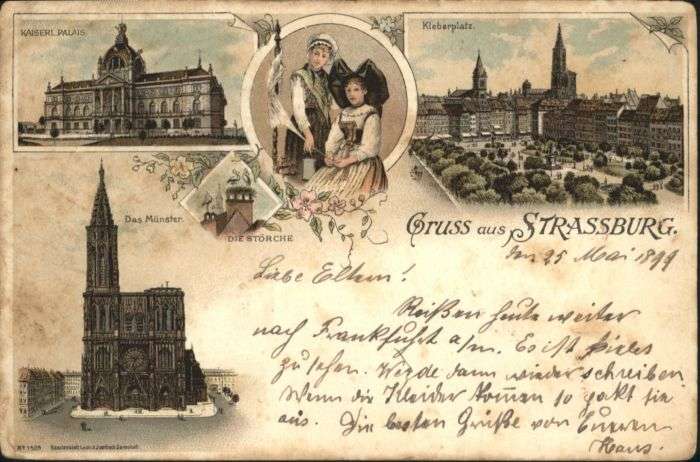 KAISERL. PALAIS.
Kleberplatz.
Das Münster.
DIE STÖRCHE
GRUSS AUS STRASSBURG.
den 25 Mai 1899
Liebe Eltern!
Reißen heute weiter
nach Frankfuhrt a/m. Es ist
zu sehen. Werde dann wieder schreiben
Wenn die Kleider kommen so pakt sie
aus. Die besten Grüße von Eueren
Hans.